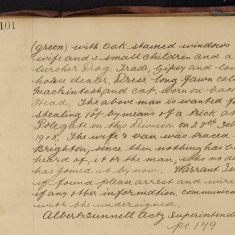 101
(green) with Oak stained windows
wife and 3 small children and a
Lurcher Dog, Trade, Gipsy and low
horse dealer, Dress, long fawn col
mackintosh and cap, worn on back
Head. The above man is wanted f
stealing 10/- by means of a trick at
Polegate in this division on 28th Feb
190 The wife & van was traced
Brighton, since then nothing has b
heard of it or the man, who no do
has joined it by now. Warrant Iss
if found please arrest and wire
if any other information commun
with the undersigned.
Albert Sunnell Actg Superintend
P.C. 149